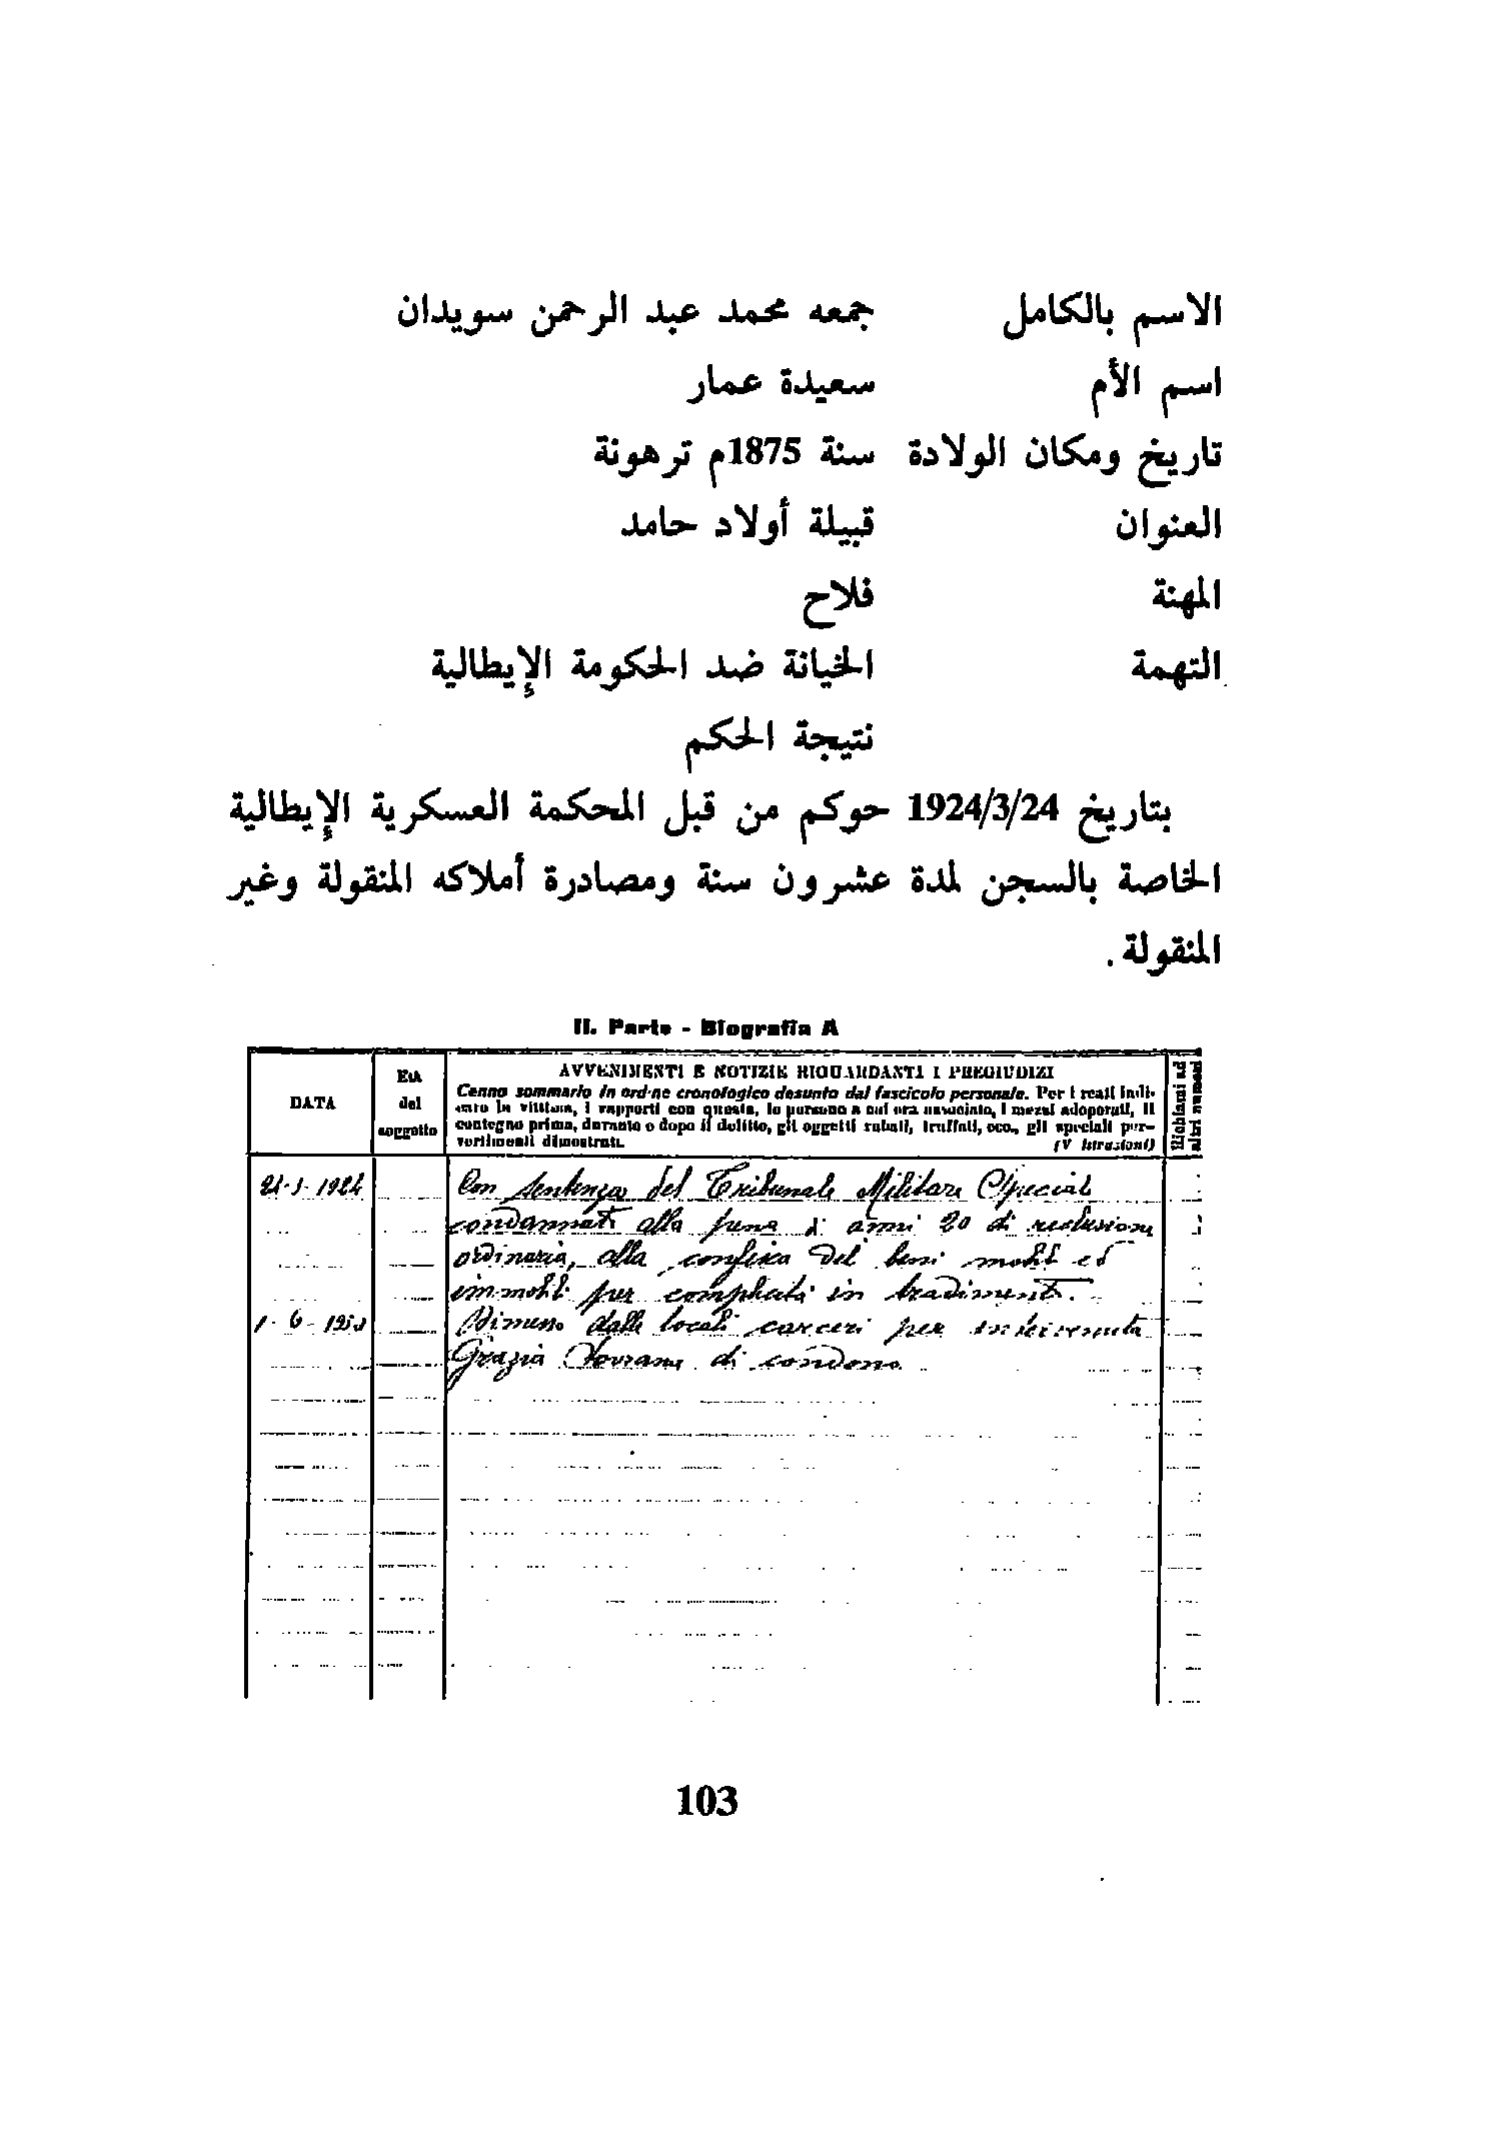 الاسم بالكامل جمعه محمد عبد الرحمن سويدان
اسم الأم سعيدة عمار
تاريخ ومكان الولادة سنة 1875م ترهونة
العنوان قبيلة أولاد حامد
المهنة فلاح
التهمة الخيانة ضد الحكومة الإيطالية
نتيجة الحكم
بتاريخ 1924/3/24 حوكم من قبل المحكمة العسكرية الإيطالية
الخاصة بالسجن لمدة عشرون سنة ومصادرة أملاكه المنقولة وغير
المنقولة.
II. Parte - Biografia A
DATA
Età
del
soggetto
AVVENIMENTI E NOTIZIE RIGUARDANTI I PREGIUDIZI
Cenno sommario in ordine cronologico desunto dal fascicolo personale. Per i reati indi-
la vittima, i rapporti con questa, le persone a cui era associato, i mezzi adoperati, il
contegno prima, durante o dopo il delitto, gli oggetti rubati, truffati, ecc., gli speciali per-
vertimenti dimostrati. (V Istruzioni)
Richiami ad
altri numeri
Con sentenza del Tribunale Militare Speciale
condannato alla pena di anni 20 di reclusione
ordinaria, alla confisca dei beni mobili ed
immobili per complicità in tradimento.
Dimesso dalle locali carceri per intervenuta
Grazia Sovrana di condono
103